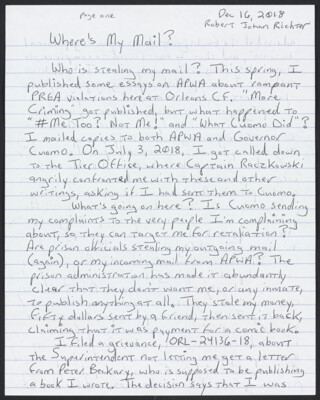 Page one
Dec 16, 2018
Robert Johan Richter
Where's My Mail?
Who is stealing my mail? This spring, I
published some essays on APWA about rampant
PREA violations here at Orleans CF. "More
Criming" got published, but what happened to
"#Me Too? Not Me!" and "What Cuomo Did"?
I mailed copies to both APWA and Governor
Cuomo. On July 3, 2018, I got called down
to the Tier Office, where Captain Raczkowski
angrily confronted me with these and other
writings, asking if I had sent them to Cuomo.
What's going on here? Is Cuomo sending
my complaints to the very people I'm complaining
about, so they can target me for retaliation?
Are prison officials stealing my outgoing mail
(again), or my incoming mail from APWA? The
prison administration has made it abundantly
clear that they don't want me, or any inmate,
to publish anything at all. They stole my money,
fifty dollars sent by a friend, then sent it back,
claiming that it was payment for a comic book.
I filed a grievance, ORL-24136-18, about
the Superintendent not letting me get a letter
from Peter, who is supposed to be publishing
a book I wrote. The decision says that I was